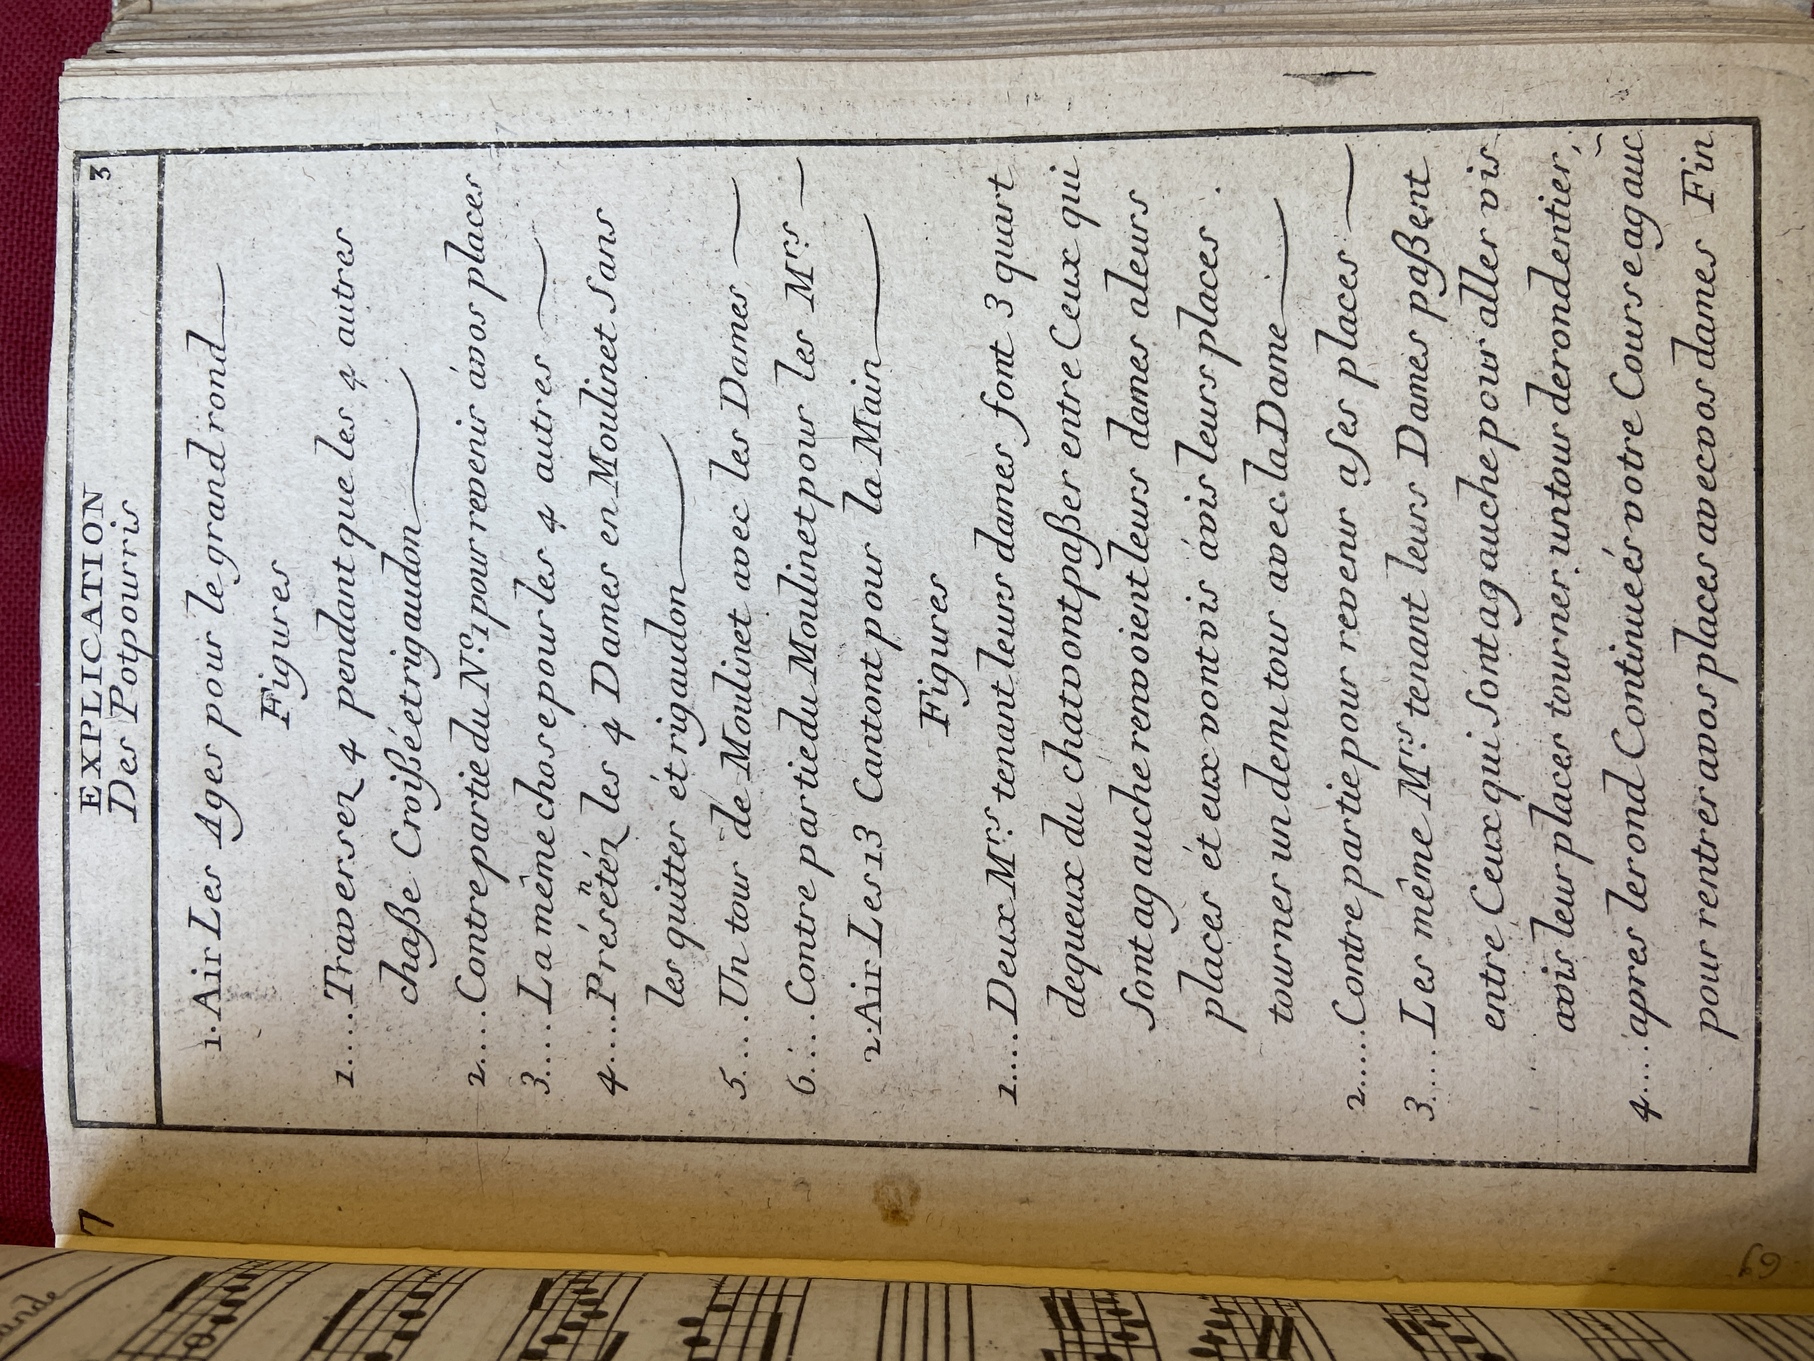 EXPLICATION
Des Potpourris
3
1. Air Les Ages pour le grand rond
Figures
1.... Traversez 4 pendant que les 4 autres
chaße Croißé et rigaudon
2.... Contre partie du N.º 1 pour revenir a vos places
3.... La même chose pour les 4 autres
4.... Présétéz les 4 Dames en Moulinet Sans
n
les quitter ét rigaudon
5.... Un tour de Moulinet avec les Dames
6.... Contre partie du Moulinet pour les M.rs
2. Air Les 13 Cantont pour la Main
Figures
1.... Deux M.rs tenant leurs dames font 3 quart
de queux du chat vont paßer entre Ceux qui
Sont a gauche renvoient leurs dames a leurs
places ét eux vont vis a vis leurs places.
tourner un demi tour avec la Dame
2..... Contre partie pour revenir a ses places
3.... Les même M.rs tenant leurs Dames paßent
entre Ceux qui Sont a gauche pour aller vis
a vis leur places tourner un tour de rond entier,
4.... apres le rond Continueés votre Course a gauc̃
pour rentrer a vos places avec vos dames Fin
7
69
ande